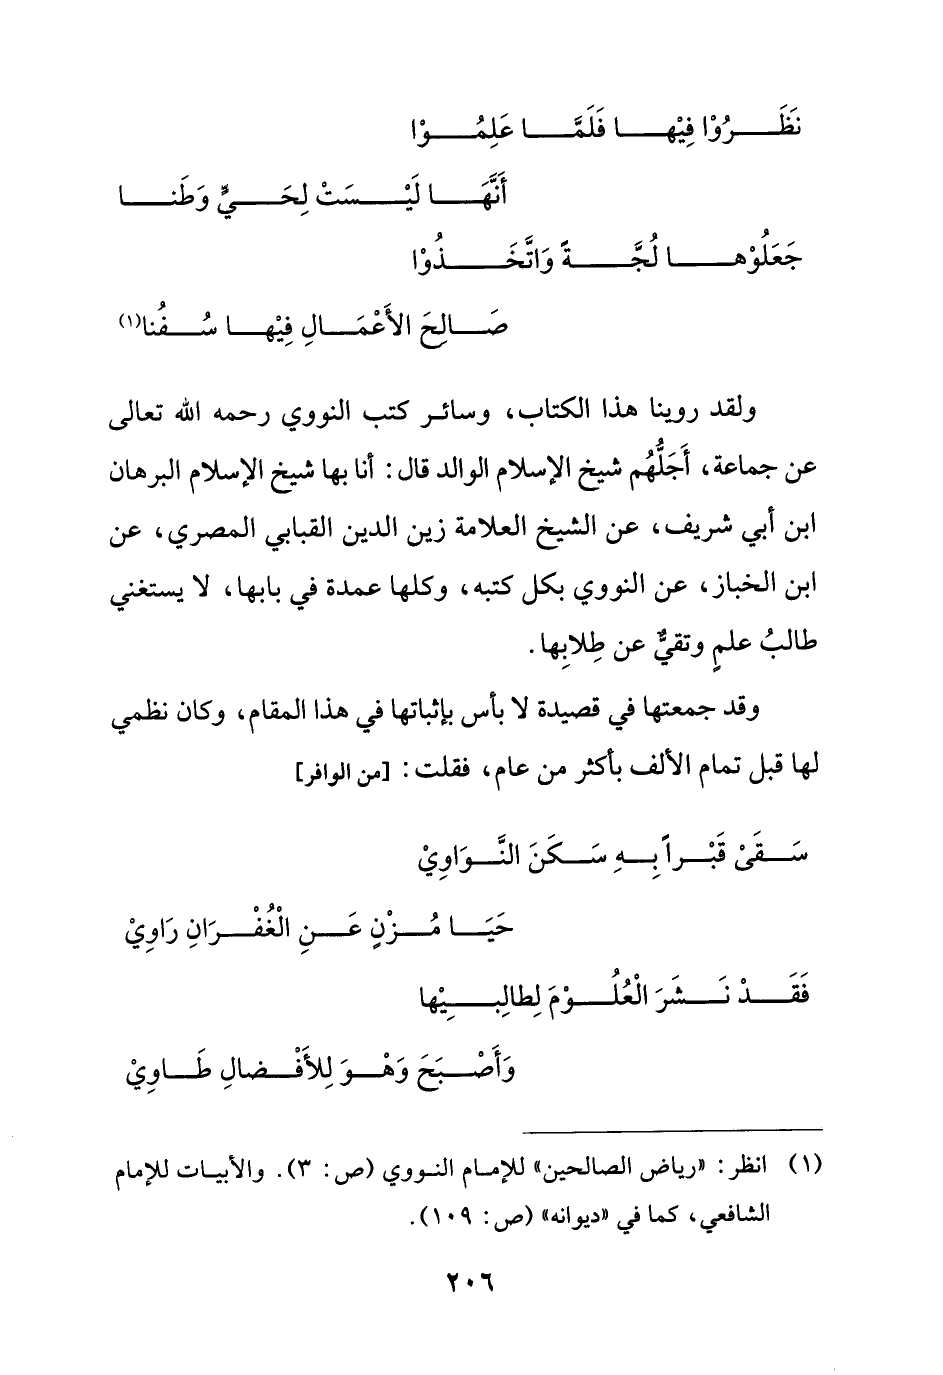 نَظَرُوْا فِيْها فَلَمَّا عَلِمُوْا
أَنَّهَا لَيْسَتْ لِحَيٍّ وَطَنا
جَعَلُوْها لُجَّةً وَاتَّخَذُوْا
صَالِحَ الأَعْمَالِ فِيْها سُفُنا(١)
ولقد روينا هذا الكتاب، وسائر كتب النووي رحمه الله تعالى
عن جماعة، أَجَلُّهُم شيخ الإسلام الوالد قال: أنا بها شيخ الإسلام البرهان
ابن أبي شريف، عن الشيخ العلامة زين الدين القبابي المصري، عن
ابن الخباز، عن النووي بكل كتبه، وكلها عمدة في بابها، لا يستغني
طالبُ علمٍ وتقيٌّ عن طِلابِها.
وقد جمعتها في قصيدة لا بأس بإثباتها في هذا المقام، وكان نظمي
لها قبل تمام الألف بأكثر من عام، فقلت: [من الوافر]
سَقَىْ قَبْراً بِهِ سَكَنَ النَّوَاوِيْ
حَيَا مُزْنٍ عَنِ الْغُفْرَانِ رَاوِيْ
فَقَدْ نَشَرَ الْعُلُوْمَ لِطالِبِيْها
وَأَصْبَحَ وَهْوَ لِلأَفْضالِ طَاوِيْ
(١) انظر: «رياض الصالحين» للإمام النووي (ص: ٣). والأبيات للإمام
الشافعي، كما في «ديوانه» (ص: ١٠٩).
٢٠٦